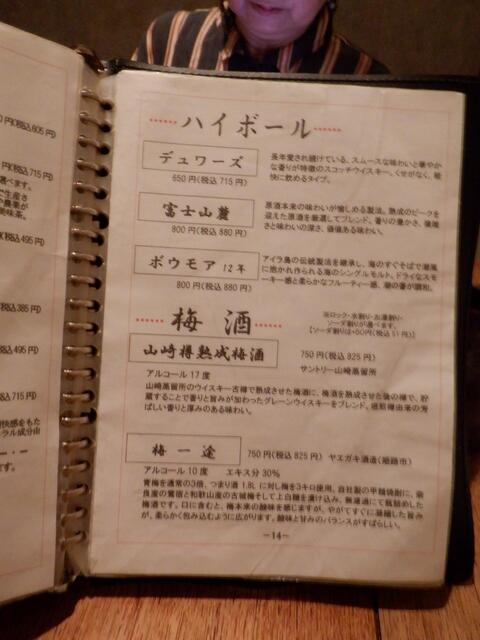 ハイボール
デュワーズ
650円(税込 715円)
長年愛され続けている、スムースな味わいと華やか
な香りが特徴のスコッチウイスキー。くせがなく、軽
快に飲めるタイプ。
富士山麓
800円(税込 880円)
原酒本来の味わいが愉しめる製法。熟成のピークを
迎えた原酒を厳選してブレンド。香りの豊かさ、複雑
さと味わいの深さ、価値ある味わい。
ボウモア 12年
800円(税込 880円)
アイラ島の伝統製法を継承し、海のすぐそばで潮風
に抱かれ作られる海のシングルモルト。ドライなスモ
ーキー感と柔らかなフルーティー感、潮の香が調和。
梅酒
※ロック・水割り・お湯割り・
ソーダ割りが選べます。
【ソーダ割りは+50円(税込 51円)】
山崎樽熟成梅酒
750円(税込 825円)
サントリー山崎蒸留所
アルコール 17度
山崎蒸留所のウイスキー古樽で熟成させた梅酒に、梅酒を熟成させた後の樽で、貯
蔵することで香りと旨みが加わったグレーンウイスキーをブレンド。焙煎樽由来の芳
ばしい香りと厚みのある味わい。
梅一途
750円(税込 825円) ヤエガキ酒造(姫路市)
アルコール 10度 エキス分 30%
青梅を通常の3倍、つまり酒 1.8L に対し梅を3キロ使用。自社製の甲類焼酎に、奈
良産の鶯宿と和歌山産の古城梅そして上白糖を漬け込み、無濾過にて瓶詰めした
梅酒です。口に含むと、梅本来の酸味を感じますが、やがてすぐに凝縮した旨み
が、柔らかく包み込むように広がります。酸味と甘みのバランスがすばらしい。
-14-
円(税込 605円)
円(税込 715円)
選べます。
で生産さ
や農薬が
美味茶。
(税込 495円)
税込 385円)
税込 495円)
税込 715円)
快感をもた
ラル成分由
です。